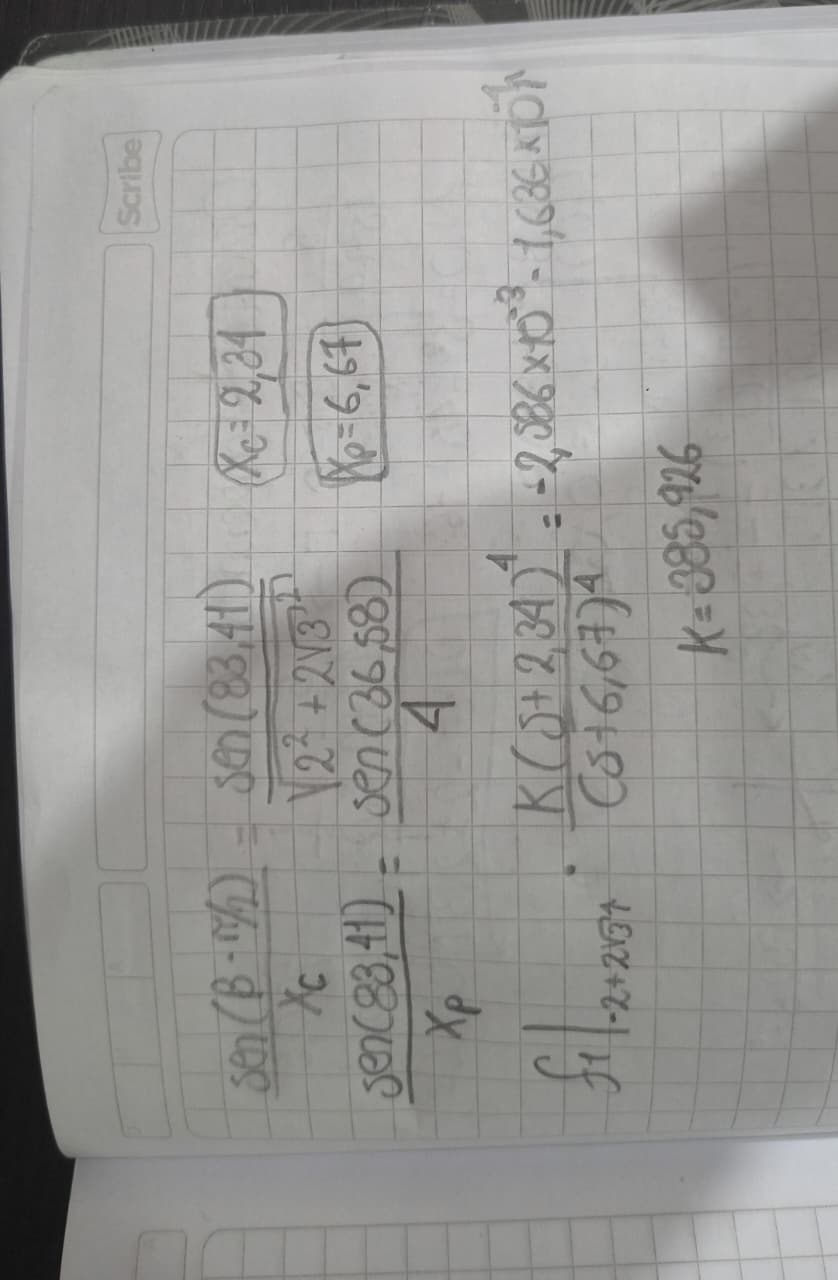 Scribe
sen(β-π/2)/Xc = sen(83,41)/√(2²+2√3²) Xc=2,34
sen(83,41)/Xp = sen(36,58)/4 Xp=6,67
f1|-2+2√3i · K(s+2,34)⁴/(s+6,67)⁴ = -2,586x10⁻³-1,636x10⁻¹i
K=385,926